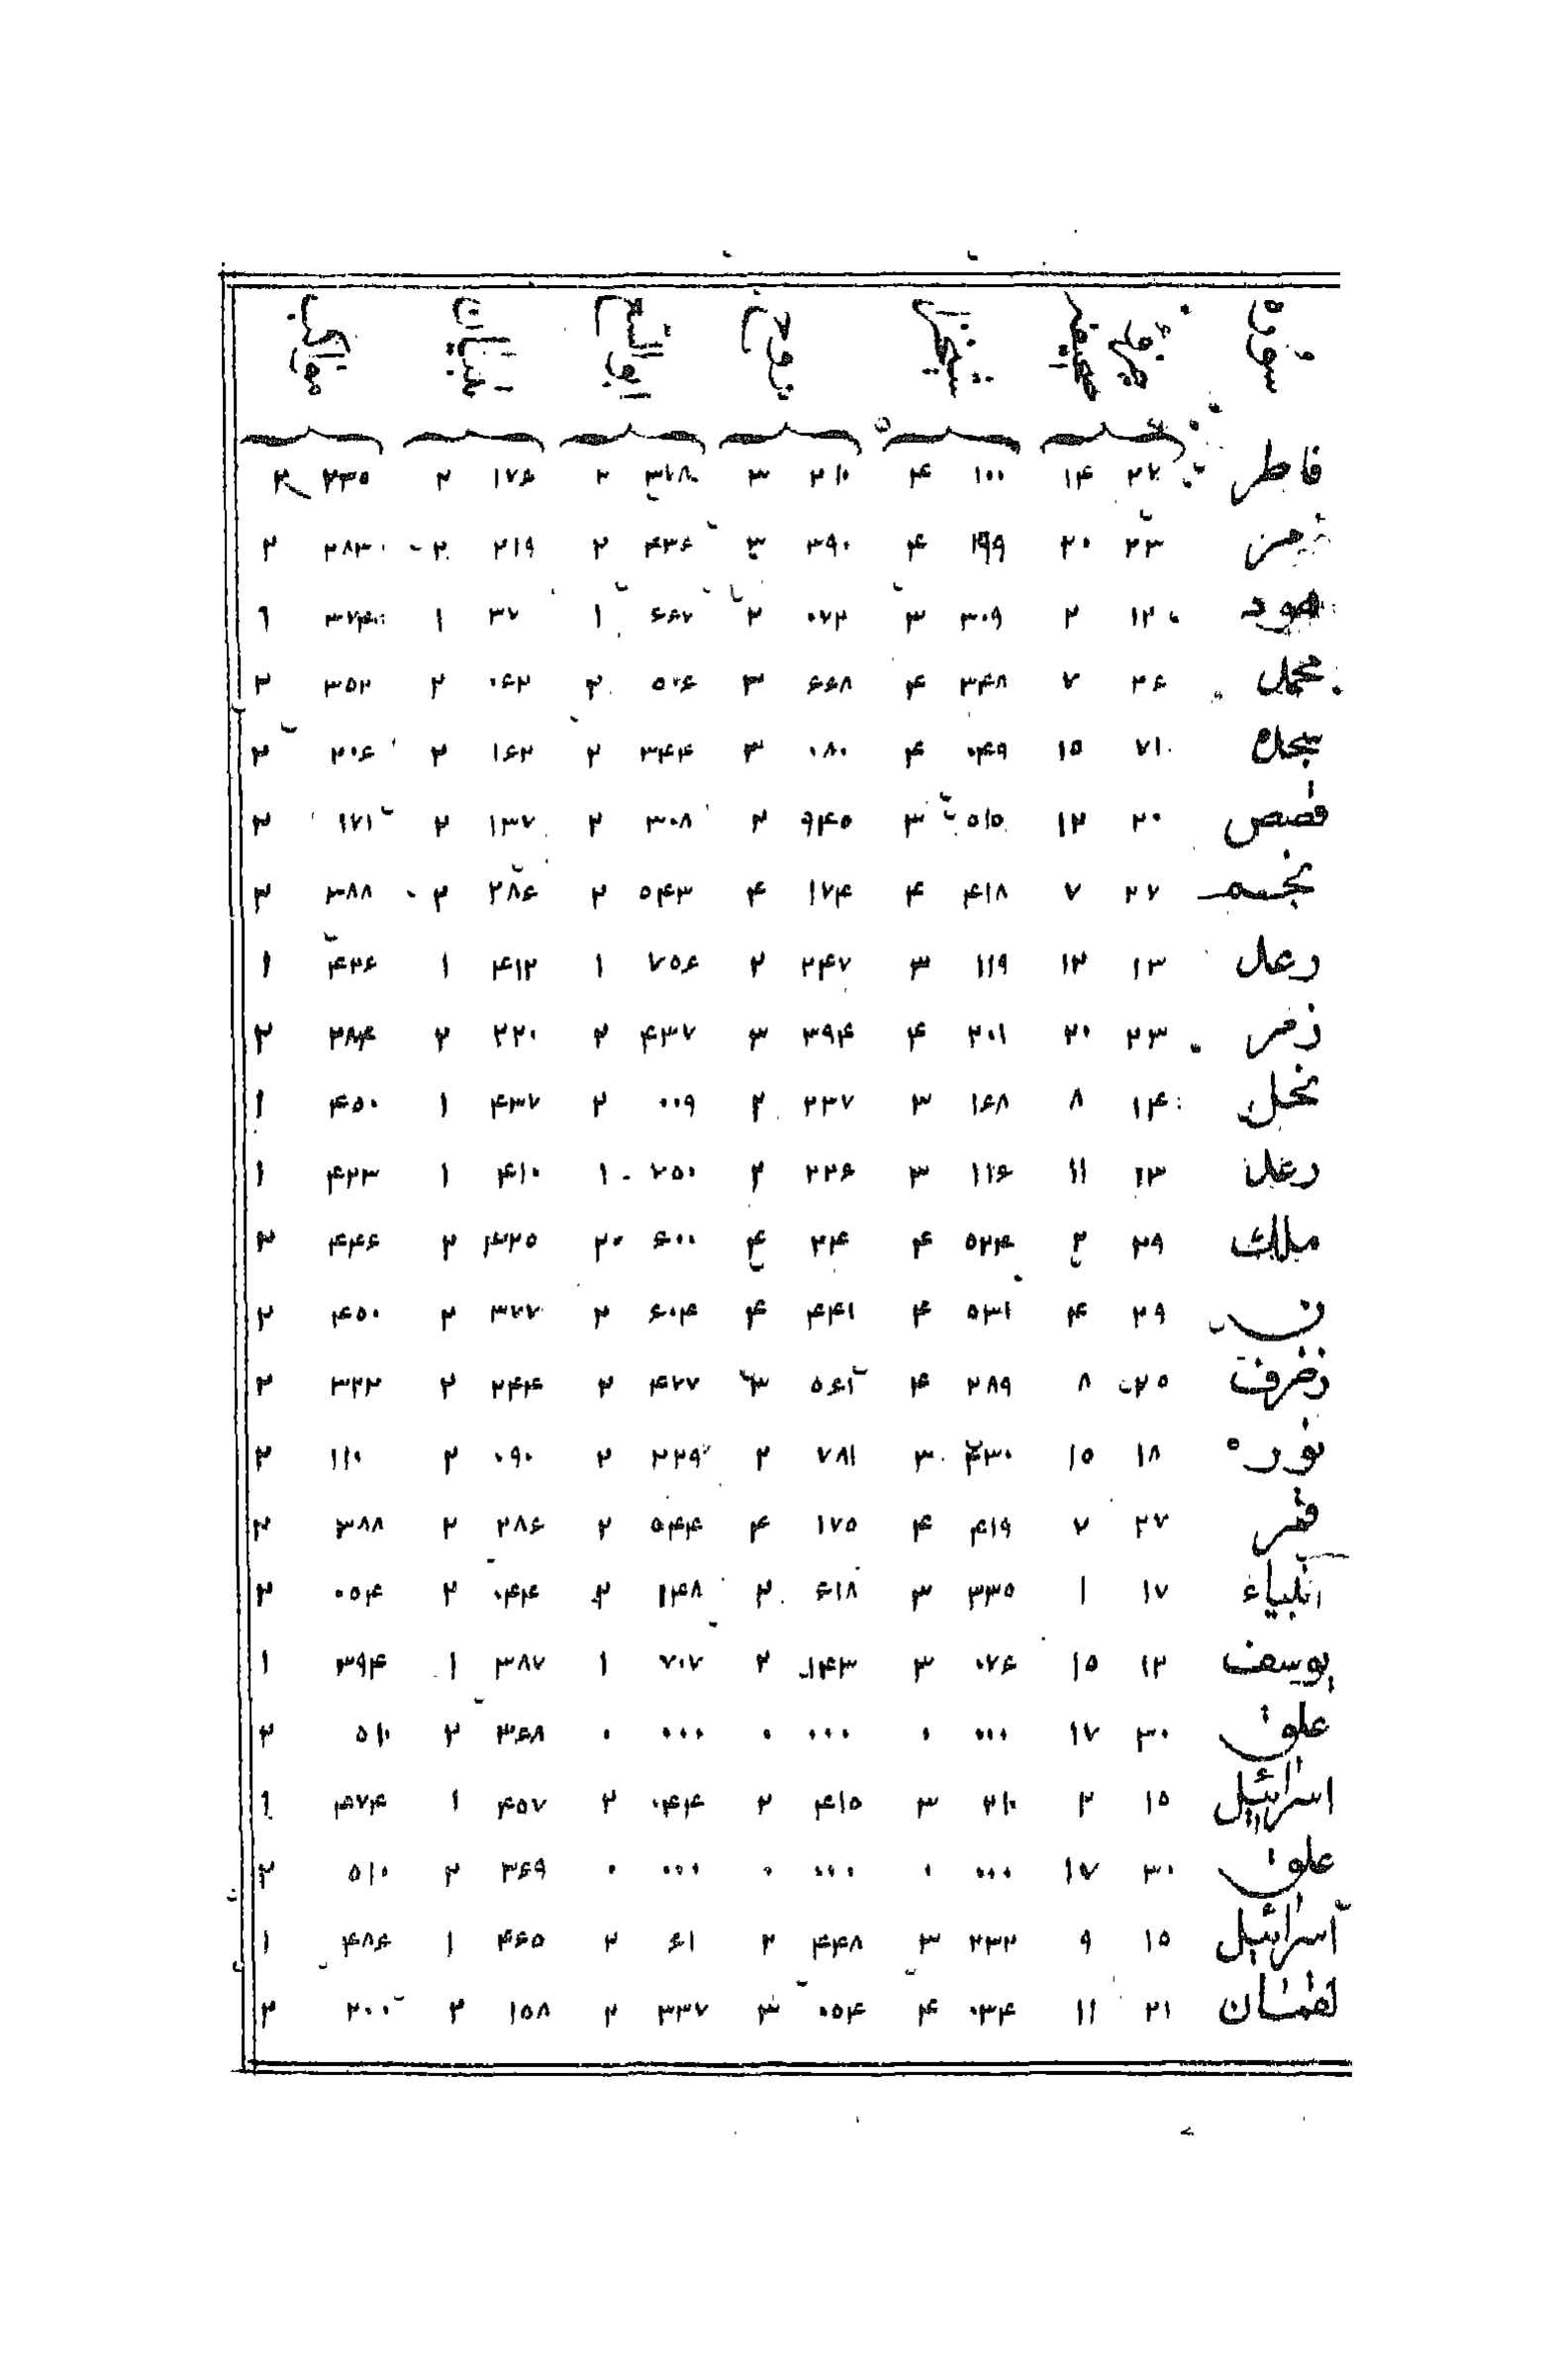 سوره جزو صفحه شیخنا روح ابو الفتح تبیان مواکب
فاطر ۲۲ ۱۴ ۱۰۰ ۴ ۲۱۰ ۳ ۳۷۸ ۲ ۱۷۶ ۲ ۲۳۵ ۲
زمر ۲۳ ۲۰ ۱۹۹ ۴ ۳۹۰ ۳ ۴۳۶ ۲ ۲۱۹ ۲ ۲۸۳ ۲
هود ۱۲ ۲ ۳۰۹ ۳ ۰۷۲ ۲ ۶۶۷ ۱ ۳۷ ۱ ۳۷۴ ۱
محمل ۲۶ ۷ ۳۴۸ ۴ ۶۶۸ ۳ ۵۰۶ ۲ ۰۶۲ ۲ ۳۵۲ ۲
سجده ۲۱ ۱۵ ۰۴۹ ۴ ۰۸۰ ۳ ۳۴۴ ۲ ۱۶۲ ۲ ۲۰۶ ۲
قصص ۲۰ ۱۲ ۵۱۵ ۳ ۹۴۵ ۲ ۳۰۸ ۲ ۱۳۷ ۲ ۱۷۱ ۲
نجم ۲۷ ۷ ۴۱۸ ۴ ۱۷۴ ۴ ۵۴۳ ۲ ۲۸۶ ۲ ۳۸۸ ۲
رعد ۱۳ ۱۲ ۱۱۹ ۳ ۲۴۷ ۲ ۷۵۶ ۱ ۴۱۲ ۱ ۴۲۶ ۱
زمر ۲۳ ۲۰ ۲۰۱ ۴ ۳۹۴ ۳ ۴۳۷ ۲ ۲۲۰ ۲ ۲۸۴ ۲
نحل ۱۴ ۸ ۱۶۸ ۳ ۲۳۷ ۲ ۰۰۹ ۲ ۴۳۷ ۱ ۴۵۰ ۱
رعد ۱۳ ۱۱ ۱۱۶ ۳ ۲۲۶ ۲ ۷۵۰ ۱ ۴۱۰ ۱ ۴۲۳ ۱
ملك ۲۹ ۲ ۵۲۴ ۴ ۲۴ ۴ ۶۰۰ ۲ ۳۲۵ ۲ ۴۴۶ ۲
ن ۲۹ ۴ ۵۳۱ ۴ ۴۴۱ ۴ ۶۰۴ ۲ ۳۲۷ ۲ ۴۵۰ ۲
زخرف ۲۵ ۸ ۲۸۹ ۴ ۵۶۱ ۳ ۴۷۷ ۲ ۲۴۴ ۲ ۳۲۲ ۲
نوره ۱۸ ۱۵ ۴۳۰ ۳ ۷۸۱ ۲ ۲۲۹ ۲ ۰۹۰ ۲ ۱۱۰ ۲
قمر ۲۷ ۷ ۴۱۹ ۴ ۱۷۵ ۴ ۵۴۴ ۲ ۲۸۶ ۲ ۳۸۸ ۲
انبیاء ۱۷ ۱ ۳۳۵ ۳ ۶۱۸ ۲ ۱۴۸ ۲ ۰۴۴ ۲ ۰۵۴ ۲
یوسف ۱۲ ۱۵ ۰۷۶ ۳ ۱۴۳ ۲ ۷۰۷ ۱ ۳۸۷ ۱ ۳۹۴ ۱
علق ۳۰ ۱۷ ۰۰۰ ۰ ۰۰۰ ۰ ۰۰۰ ۰ ۳۶۸ ۲ ۵۱۰ ۲
اسرائیل ۱۵ ۲ ۲۱۰ ۳ ۴۱۵ ۲ ۰۴۴ ۲ ۴۵۷ ۱ ۴۷۴ ۱
علق ۳۰ ۱۷ ۰۰۰ ۰ ۰۰۰ ۰ ۰۰۰ ۰ ۳۶۹ ۲ ۵۱۰ ۲
اسرائیل ۱۵ ۹ ۲۳۲ ۳ ۴۴۸ ۲ ۶۱ ۲ ۴۶۵ ۱ ۴۸۶ ۱
لقمان ۲۱ ۱۱ ۰۳۴ ۴ ۰۵۴ ۳ ۳۳۷ ۲ ۱۵۸ ۲ ۲۰۰ ۲